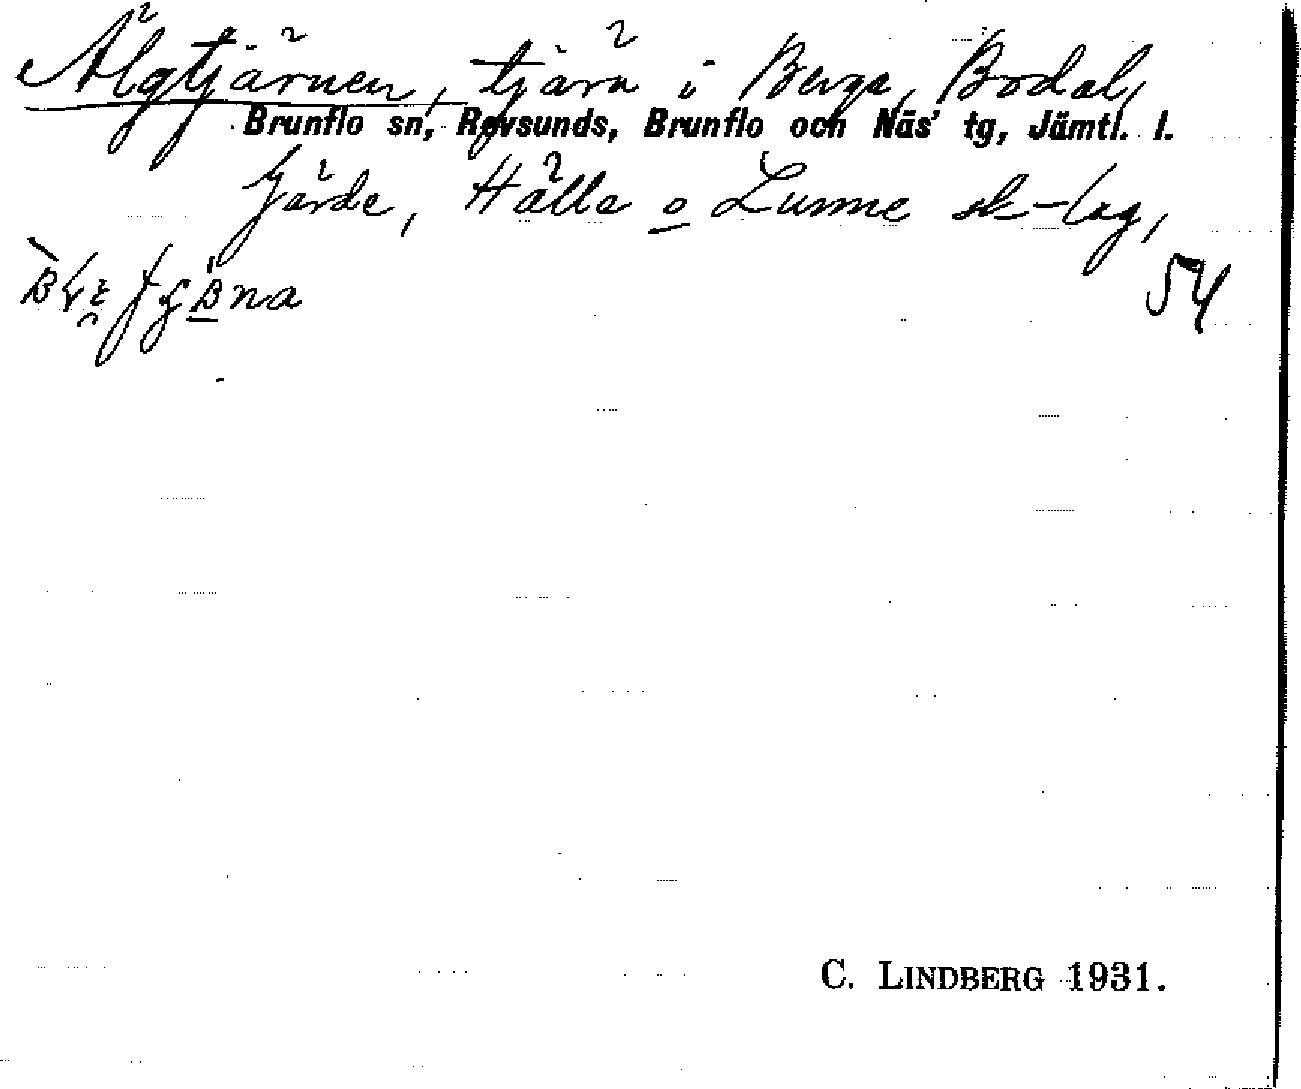 Älgtjärnen, tjärn i Berge, Bodal,
Brunflo sn, Revsunds, Brunflo och Näs' tg, Jämtl. l.
Gärde, Hälle o Lunne sk-lag,
54
C. LINDBERG 1931.